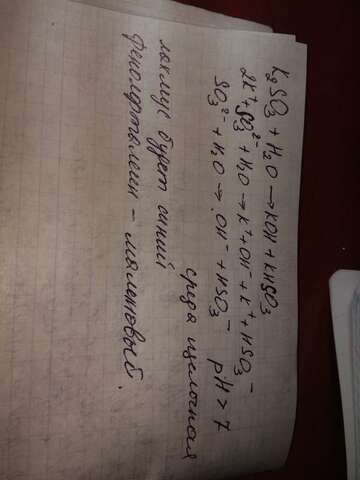 K₂SO₃ + H₂O → KOH + KHSO₃
2K⁺ + SO₃²⁻ + H₂O → K⁺ + OH⁻ + K⁺ + HSO₃⁻
SO₃²⁻ + H₂O → OH⁻ + HSO₃⁻ pH > 7
среда щелочная
лакмус будет синий
Фенолфталеин – малиновый.